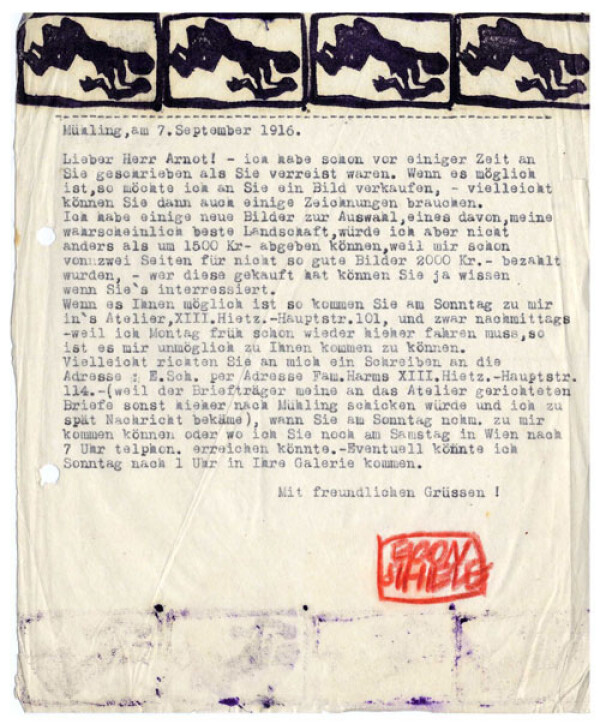 Mühling,am 7.September 1916.
Lieber Herr Arnot! - ich habe schon vor einiger Zeit an
Sie geschrieben als Sie verreist waren. Wenn es möglich
ist,so möchte ich an Sie ein Bild verkaufen, - vielleicht
können Sie dann auch einige Zeichnungen brauchen.
Ich habe einige neue Bilder zur Auswahl,eines davon,meine
wahrscheinlich beste Landschaft,würde ich aber nicht
anders als um 1500 Kr- abgeben können,weil mir schon
vonnzwei Seiten für nicht so gute Bilder 2000 Kr.- bezahlt
wurden, - wer diese gekauft hat können Sie ja wissen
wenn Sie`s interressiert.
Wenn es Ihnen möglich ist so kommen Sie am Sonntag zu mir
in`s Atelier,XIII.Hietz.-Hauptstr.101, und zwar nachmittags
-weil ich Montag früh schon wieder hieher fahren muss,so
ist es mir unmöglich zu Ihnen kommen zu können.
Vielleicht richten Sie an mich ein Schreiben an die
Adresse : E.Sch. per Adresse Fam.Harms XIII.Hietz.-Hauptstr.
114.-(weil der Briefträger meine an das Atelier gerichteten
Briefe sonst hieher nach Mühling schicken würde und ich zu
spät Nachricht bekäme), wann Sie am Sonntag nchm. zu mir
kommen können oder wo ich Sie noch am Samstag in Wien nach
7 Uhr telphon. erreichen könnte.-Eventuell könnte ich
Sonntag nach 1 Uhr in Ihre Galerie kommen.
Mit freundlichen Grüssen !
EGON
SCHIELE